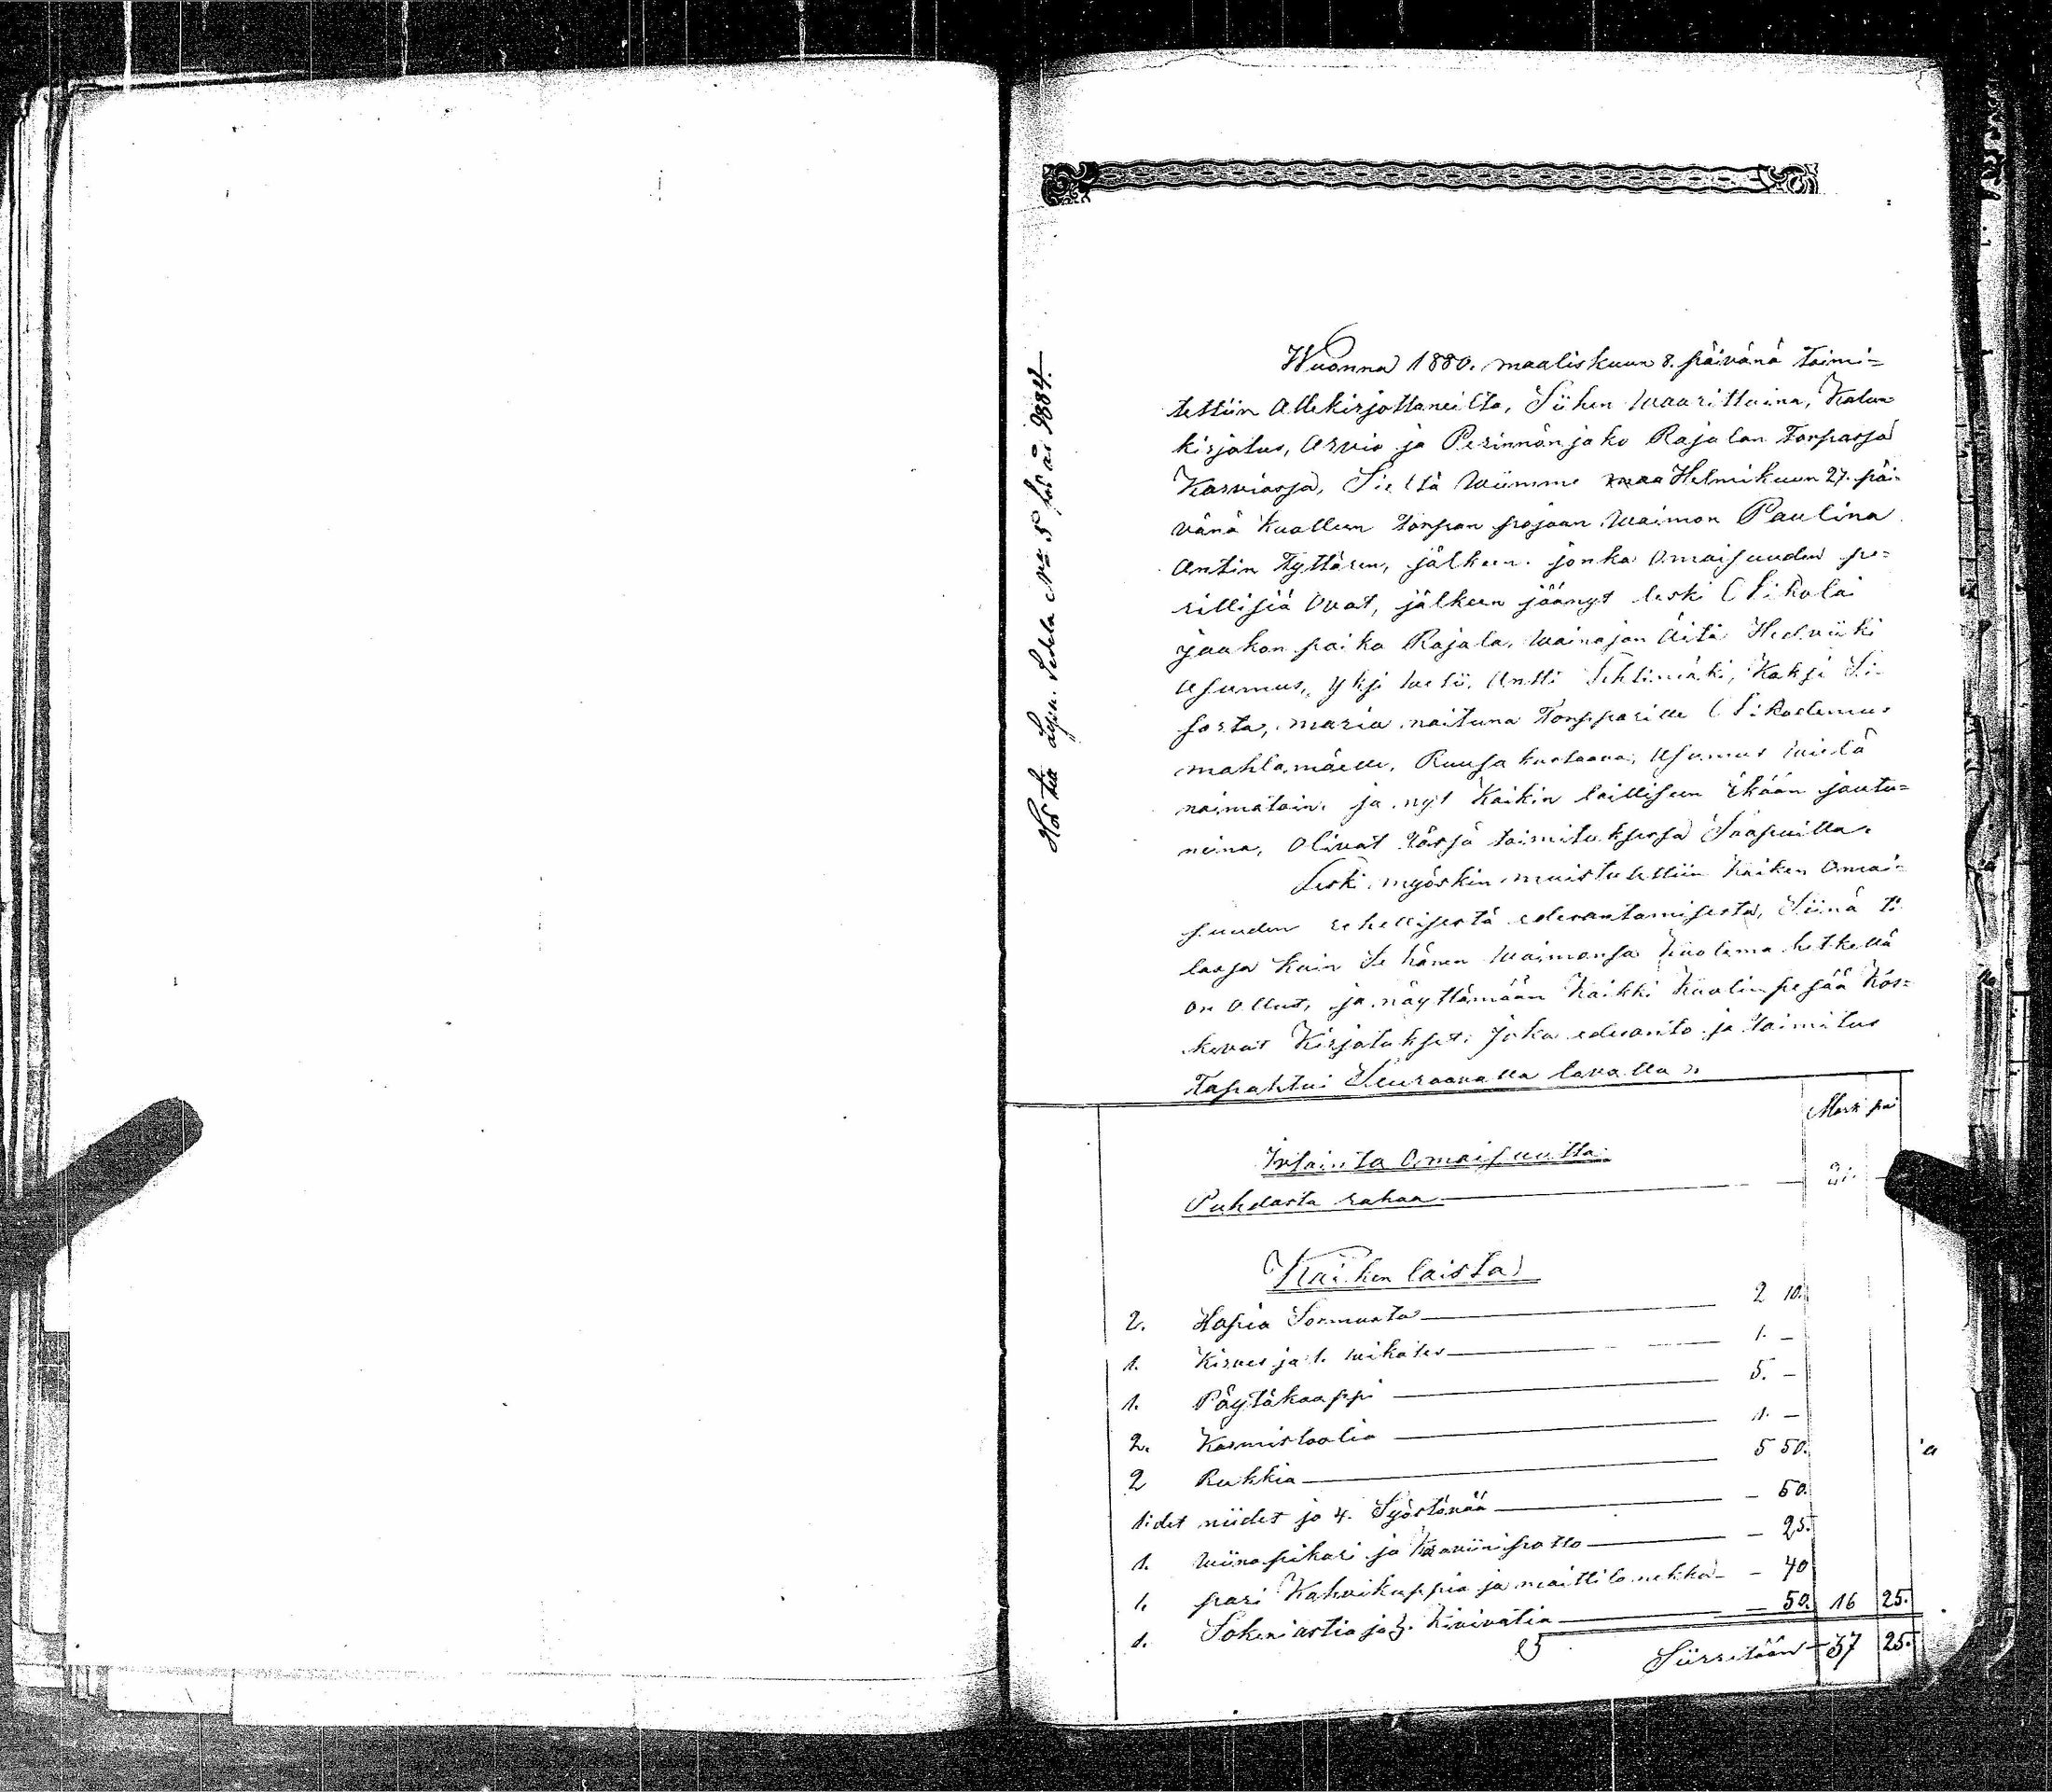 Hör till Lysn. Sedeln No 5 för år 1884.
Wuonna 1880. maaliskuun 8. päivänä toimi=
tettiin Allekirjottaneilta, Siihen waarittuina, Kalun
kirjotus, Arvio ja Perinnönjako Rajalan Torpassa
Karviassa, Sieltä wiimme Helmikuun 27. päi=
vänä kuolleen torpan pojaan waimon Paulina
Antin Tyttären, jälkeen. jonka Omaisuuden pe=
rillisiä Ovat, jälkeen jäänyt leski Nikolai
Jaakon poika Rajala, wainajan Äiti Hedviiki
Asumus, yksi weli, Antti Lehtimäki, Kaksi Si=
sorta, maria naituna Torpparille Nikodemus
mahlamäelle, Ruusa kustaava, Asumus wielä
naimatoin. ja nyt Kaikin lailliseen ikään joutu=
neina, Olivat tässä toimituksessa Saapuilla.
Leski myöskin muistutettiin kaiken Omai=
suuden rehellisestä edesantamisesta, Siinä ti
lassa kuin Se hänen waimonsa kuolema hetkellä
on ollut, ja näyttämään Kaikki Kuolinpesää Kos=
kevat Kirjotukset. Joka edesanto ja toimitus
Tapahtui Seuraavalla tavalla.
Mark pni
Irtainta Omaisuutta.
Puhdasta rahaa
Kaikenlaista
2. Hopia Sormusta 2 10.
1. Kirves ja 1. wikates 1. –
1. Pöytäkaappi 5. –
2. Karmistoolia 1. –
2 Rukkia 5 50.
1:det niidet ja 4. Syöstävää – 50.
1. wiinapikari ja Kraviinipotto – 25.
1. pari Kahvikuppia ja maittilonekka – 40
1. Sokeriastia ja 3. Kivivatia – 50. 16 25.
Siirretään 37 25.